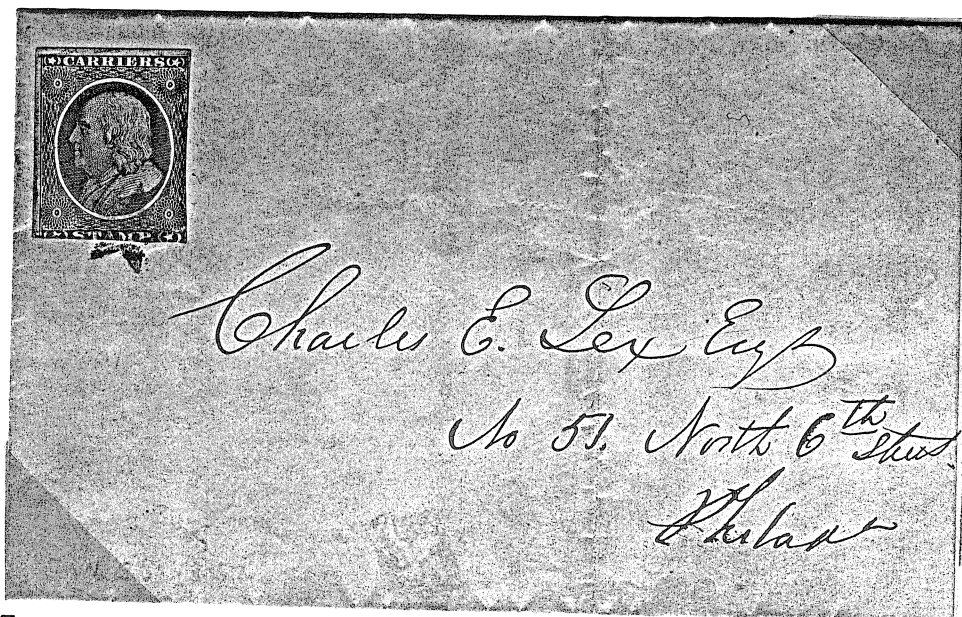 CARRIERS
STAMP
Charles E. Lex Esqr
No 51. North 6th Street
Philada